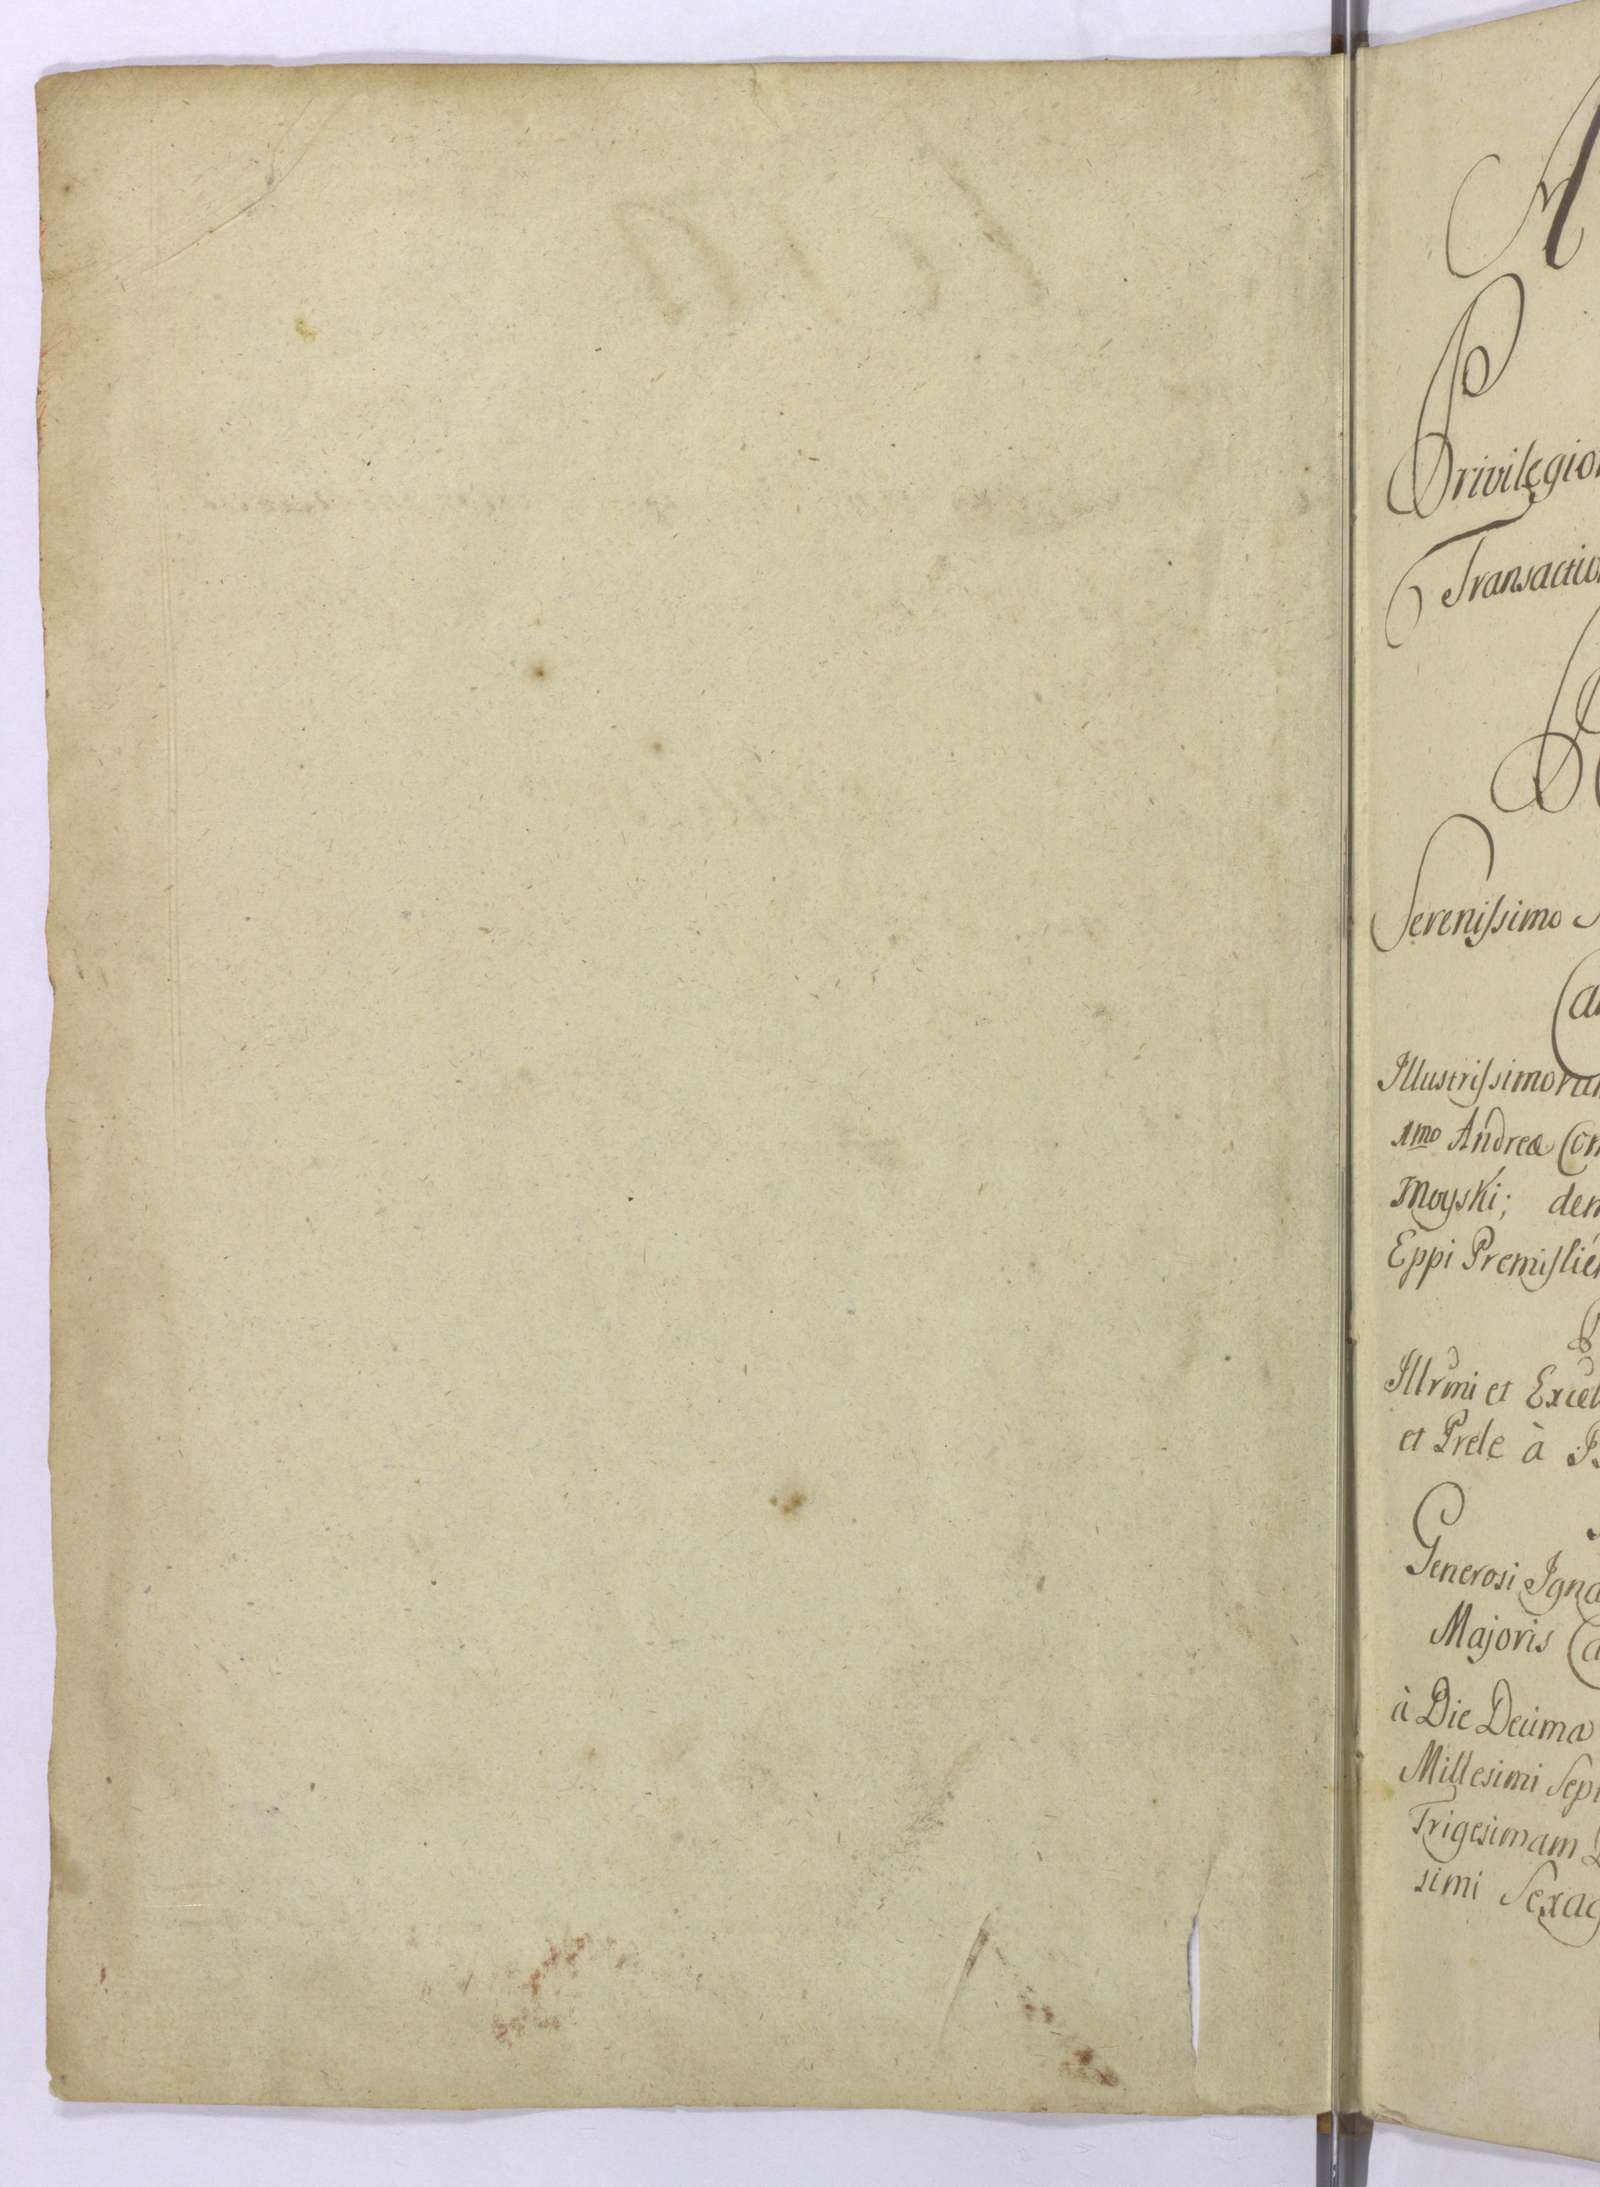 A
Privilegio
Transactio
Serenissimo
Ca
Illustrissimorum
Xmo Andreæ Com
moyski; den
Eppi Premislien
Illrmi et Excel
et Prele à
Generosi Igna
Majoris Ca
à Die Decima
Millesimi Sept
Trigesimam
simi Sexag